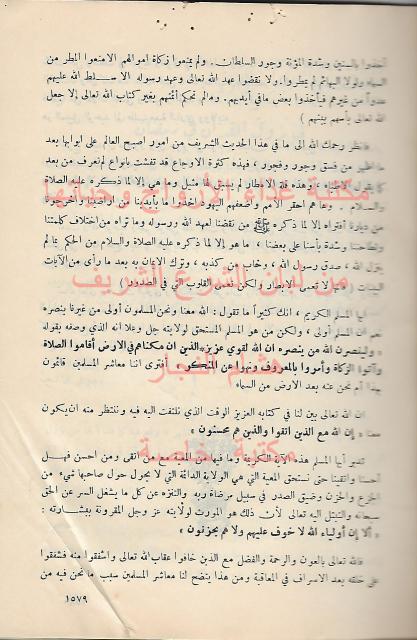 أخذوا بالسنين وشدة المؤنة وجور السلطان. ولم يمنعوا زكاة اموالهم الامنعوا المطر من
السماء ولولا البهائم لم يمطروا. ولا نقضوا عهد الله تعالى وعهد رسوله الا سلط الله عليهم
عدواً من غيرهم فيأخذوا بعض ما في أيديهم. ومالم تحكم أئمتهم بغير كتاب الله تعالى إلا جعل
الله تعالى بأسهم بينهم )
فانظر رحمك الله الى ما في هذا الحديث الشريف من امور اصبح العالم على ابوابها بعد
ما ظهر من فسق وجور وفجور ، فهذه كثرة الاوجاع قد تفشت بأنواع لم نعرف من بعد
كما يقول الاطباء ، وهذه قلة الامطار لم يسبق لها مثيل وما هي إلا لما ذكره عليه الصلاة
والسلام . وها هم احقر الامم وأضعفهم اليهود اخذوا ما بأيدينا من اراضينا وأخرجونا
من ديارنا أفتراه إلا لما ذكره ﷺ من نقضنا لعهد الله ورسوله وما تراه من اختلاف كلمتنا
وتطاحننا وشدة بأسنا على بعضنا ، ما هو إلا لما ذكره عليه الصلاة والسلام من الحكم بما لم
ينزل الله ، صدق رسول الله ، وخاب من كذبه ، وترك الايمان به بعد ما رأى من الآيات
البينات ( فانها لا تعمى الابصار ولكن تعمى القلوب التي في الصدور )
ايها المسلم الكريم ، انك كثيراً ما تقول : الله معنا ونحن المسلمون أولى من غيرنا بنصره
نعم ان المسلم أولى ، ولكن من هو المسلم المستحق لولايته جل وعلا انه الذي وصفه بقوله
« ولينصرن الله من ينصره ان الله لقوي عزيز «الذين ان مكناهم في الارض أقاموا الصلاة
وآتوا الزكاة وأمروا بالمعروف ونهوا عن المنكر» أفترى اننا معاشر المسلمين قائمون
بهذا أم نحن عنه بعد الارض من السماء
ان الله تعالى بين لنا في كتابه العزيز الوقت الذي نلتفت اليه فيه وننتظر منه ان يكون
معنا « إن الله مع الذين اتقوا والذين هم محسنون »
تدبر أيها المسلم هذه الآية الكريمة وما فيها من المعية مع من اتقى ومن احسن فهل
أحسنا واتقينا حتى نستحق المعية التي هي الولاية الدائمة التي لا يحول حول صاحبها شيء من
الجزع والحزن وضيق الصدر في سبيل مرضاة ربه والتنزه عن كل ما يشغل السر عن الحق
سبحانه والتبتل اليه تعالى لأن ذلك هو المورث لولايته عز وجل المقرونة ببشارته :
« ألا إن أولياء الله لا خوف عليهم ولا هم يحزنون »
فالله تعالى بالعون والرحمة والفضل مع الذين خافوا عقاب الله تعالى واشفقوا منه فشفقوا
على خلقه بعد الاسراف في المعاقبة ومن هذا يتضح لنا معاشر المسلمين سبب ما نحن فيه من
١٥٧٩
من لبنان الشرع الشريف
هشام النجار
مكتبة خليسة